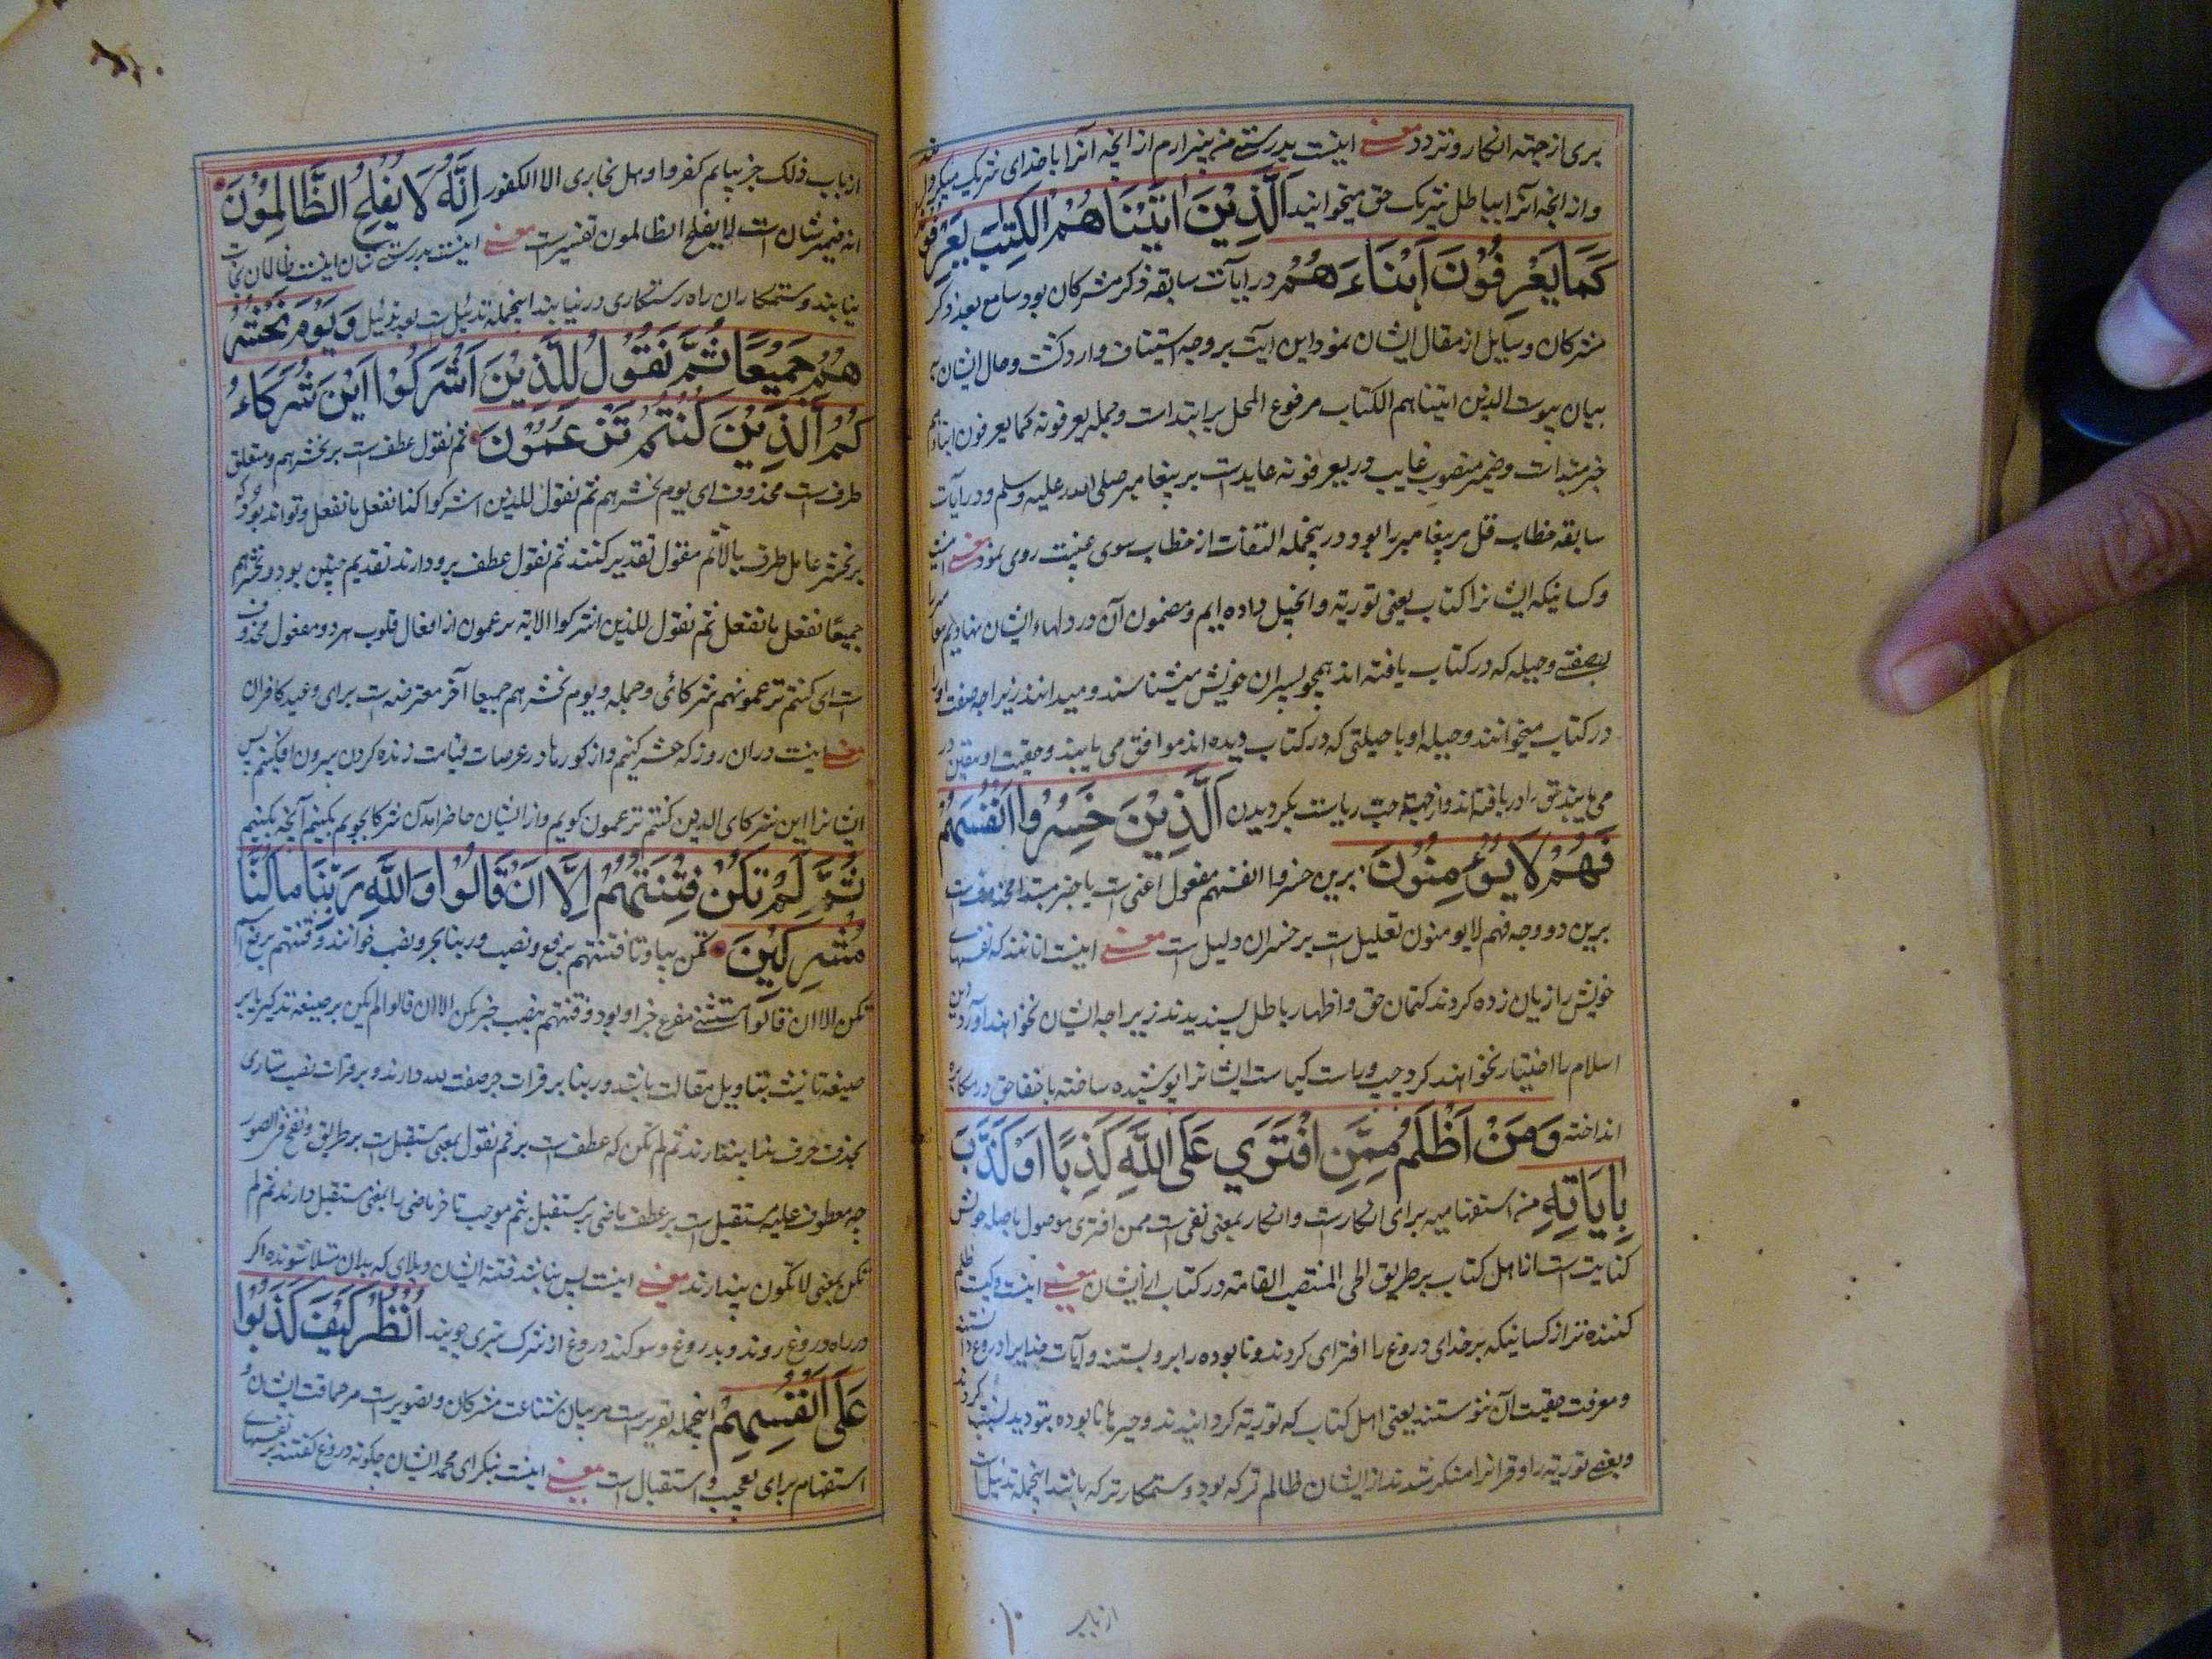 بری از جهته انکار و تردد معنی اینست بدرستی من بیزارم از انچه آنرا با خدای شریک میکردید
و از انچه آنرا بباطل شریک حق میخوانید اَلَّذِيْنَ اٰتَيْنَاهُمُ الْكِتٰبَ يَعْرِفُوْنَهُ
كَمَا يَعْرِفُوْنَ اَبْنَاءَ هُمْ در آیات سابقه ذکر مشرکان بود سامع بعد ذکر
مشرکان و سایل از مقال ایشان نمود این آیت بر وجه استیناف وارد کشت و حال ایشان به
بیان پیوست الذین اتیناهم الکتاب مرفوع المحل بر ابتداست و جمله یعرفونه کما یعرفون ابناءهم
خبر مبتداست و ضمیر منصوب غایب در یعرفونه عایدست بر پیغامبر صلی الله علیه وسلم و در آیات
سابقه خطاب قل مر پیغامبر را بود درینجمله التفات از خطاب سوی غیبت روی نمود معنی اینست
و کسانیکه ایشانرا کتاب یعنی توریته و انجیل داده ایم و مضمون آن در دلهاء ایشان نهادیم
بصفتی و حیله که در کتاب یافته اند همچو پسران خویش میشناسند و میدانند زیراچه صفت او را
در کتاب میخوانند و حیله او با حیلتی که در کتاب دیده اند موافق می یابند و حقیت او یقین در
می یابند حق را دریافته اند و از جهته حب ریاست بکردیدن اَلَّذِيْنَ خَسِرُوْا اَنْفُسَهُمْ
فَهُمْ لَا يُوْمِنُوْنَ برین خسروا انفسهم مفعول اعنی است یا خبر مبتدا محذوفست
برین دو وجه فهم لا یومنون تعلیل است بر خسران دلیل است معنی اینست انانند که نفسهای
خویش را زیان زده کردند کتمان حق و اظهار باطل پسندیدند زیراچه ایشان نخواهند آورد دین
اسلام را اختیار نخواهند کرد حب ریاست کیاست ایشانرا پوشیده ساخته باخفا حق در مکابره
انداخته وَمَنْ اَظْلَمُ مِمَّنِ افْتَرَي عَلَى اللّٰهِ كَذِبًا اَوْ كَذَّبَ
بِاٰيَاتِهٖ من استفهامیه برای انکارست و انکار بمعنی نفی است ممن افتری موصول با صله خویش
کنایت است از اهل کتاب بر طریق الحی المنتصب القامة در کتاب از ایشان معنی اینست و کیست ظالم
کننده تر از کسانیکه بر خدای دروغ را افترای کردند و نابوده را برو بستند و آیات خدایرا دروغ داشتند
و معرفت حقیت آن ننوستند یعنی اهل کتاب که توریته کردانیدند و چیزها نابوده بتورید نسبت کردند
و بعضی توریته را و قرانرا منکر شدند از ایشان ظالم تر که بود و ستمکارتر که باشد اینجمله تذییل است
از باب
از باب ذلک جزیناهم کفروا و هل نجازی الا الکفور اِنَّهٗ لَا يُفْلِحُ الظَّالِمُوْنَ
انه ضمیر شان است لا یفلح الظالمون تفسیرست معنی اینست بدرستی شان اینست ظالمان نجات
نیابند و ستمکاران راه رستکاری در نیابند اینجمله تذییل است بعد تذییل وَيَوْمَ نَحْشُرُ
هُمْ جَمِيْعًا ثُمَّ نَقُوْلُ لِلَّذِيْنَ اَشْرَكُوْا اَيْنَ شُرَكَاءُ
كُمُ الَّذِيْنَ كُنْتُمْ تَزْعَمُوْنَ ثم نقول عطف است بر نحشرهم و متعلق
ظرف است محذوف ای یوم نحشرهم ثم نقول للذین اشرکوا کنا نفعل ما نفعل و تواند بود که
بر نحشر عامل ظرف یا لاثم مقول تقدیر کنند ثم نقول عطف برو دارند تقدیم چنین بود و نحشرهم
جمیعًا نفعل ما نفعل ثم نقول للذین اشرکوا الایه تزعمون از افعال قلوب هر دو مفعول محذوف
است ای کنتم تزعمونهم شرکائی و جمله و یوم نحشرهم جمیعا آخر معترضه است برای وعید کافران
معنی اینست دران روز که حشر کنیم و از کورها در عرصات قیامت زنده کردن بیرون افکنیم پس
ایشانرا این شرکای الذین کنتم تزعمون کویم و از ایشان حاضر آمدن شرکا بجویم بکنیم آنچه بکنیم
ثُمَّ لَمْ تَكُنْ فِتْنَتُهُمْ اِلَّا اَنْ قَالُوْا وَاللّٰهِ رَبِّنَا مَا كُنَّا
مُشْرِكِيْنَ تکن بیا و تا فتنتهم برفع و نصب و ربنا بجر و نصب خوانند و فتنتهم برفع اسم
تکن الا ان قالوا استثنی مفرغ خبر او بود و فتنتهم بنصب خبر تکن الا ان قالوا لم یکن بر صیغه تذکیر یا بر
صیغه تانیث بتاویل مقالت باشد و ربنا بر قرات جر صفت لله دارند و بر قرات نصب منادی
بحذف حرف ندا پندارند ثم لم تکن که عطف است بر ثم نقول بمعنی مستقبل است بر طریق و نفخ فی الصور
چه معطوف علیه مستقبل است بر عطف ماضی بر مستقبل بثم موجب تاخر ماضی را بمعنی مستقبل دارند ثم لم
تکن بمعنی لا تکون پندارند معنی اینست پس نباشد فتنه ایشان و بلای که بدان مبتلا شوند اکر
در راه دروغ روند و بدروغ و سوکند دروغ از شرک تبری جویند اُنْظُرْ كَيْفَ كَذَبُوْا
عَلٰى اَنْفُسِهِمْ اینجمله تقریرست مر بیان شناعت مشرکان و تصویرست مر حماقت ایشان و
استفهام برای تعجیب و استقبال است معنی اینست بنکر ای محمد ایشان چکونه دروغ کفتند بر نفسهای